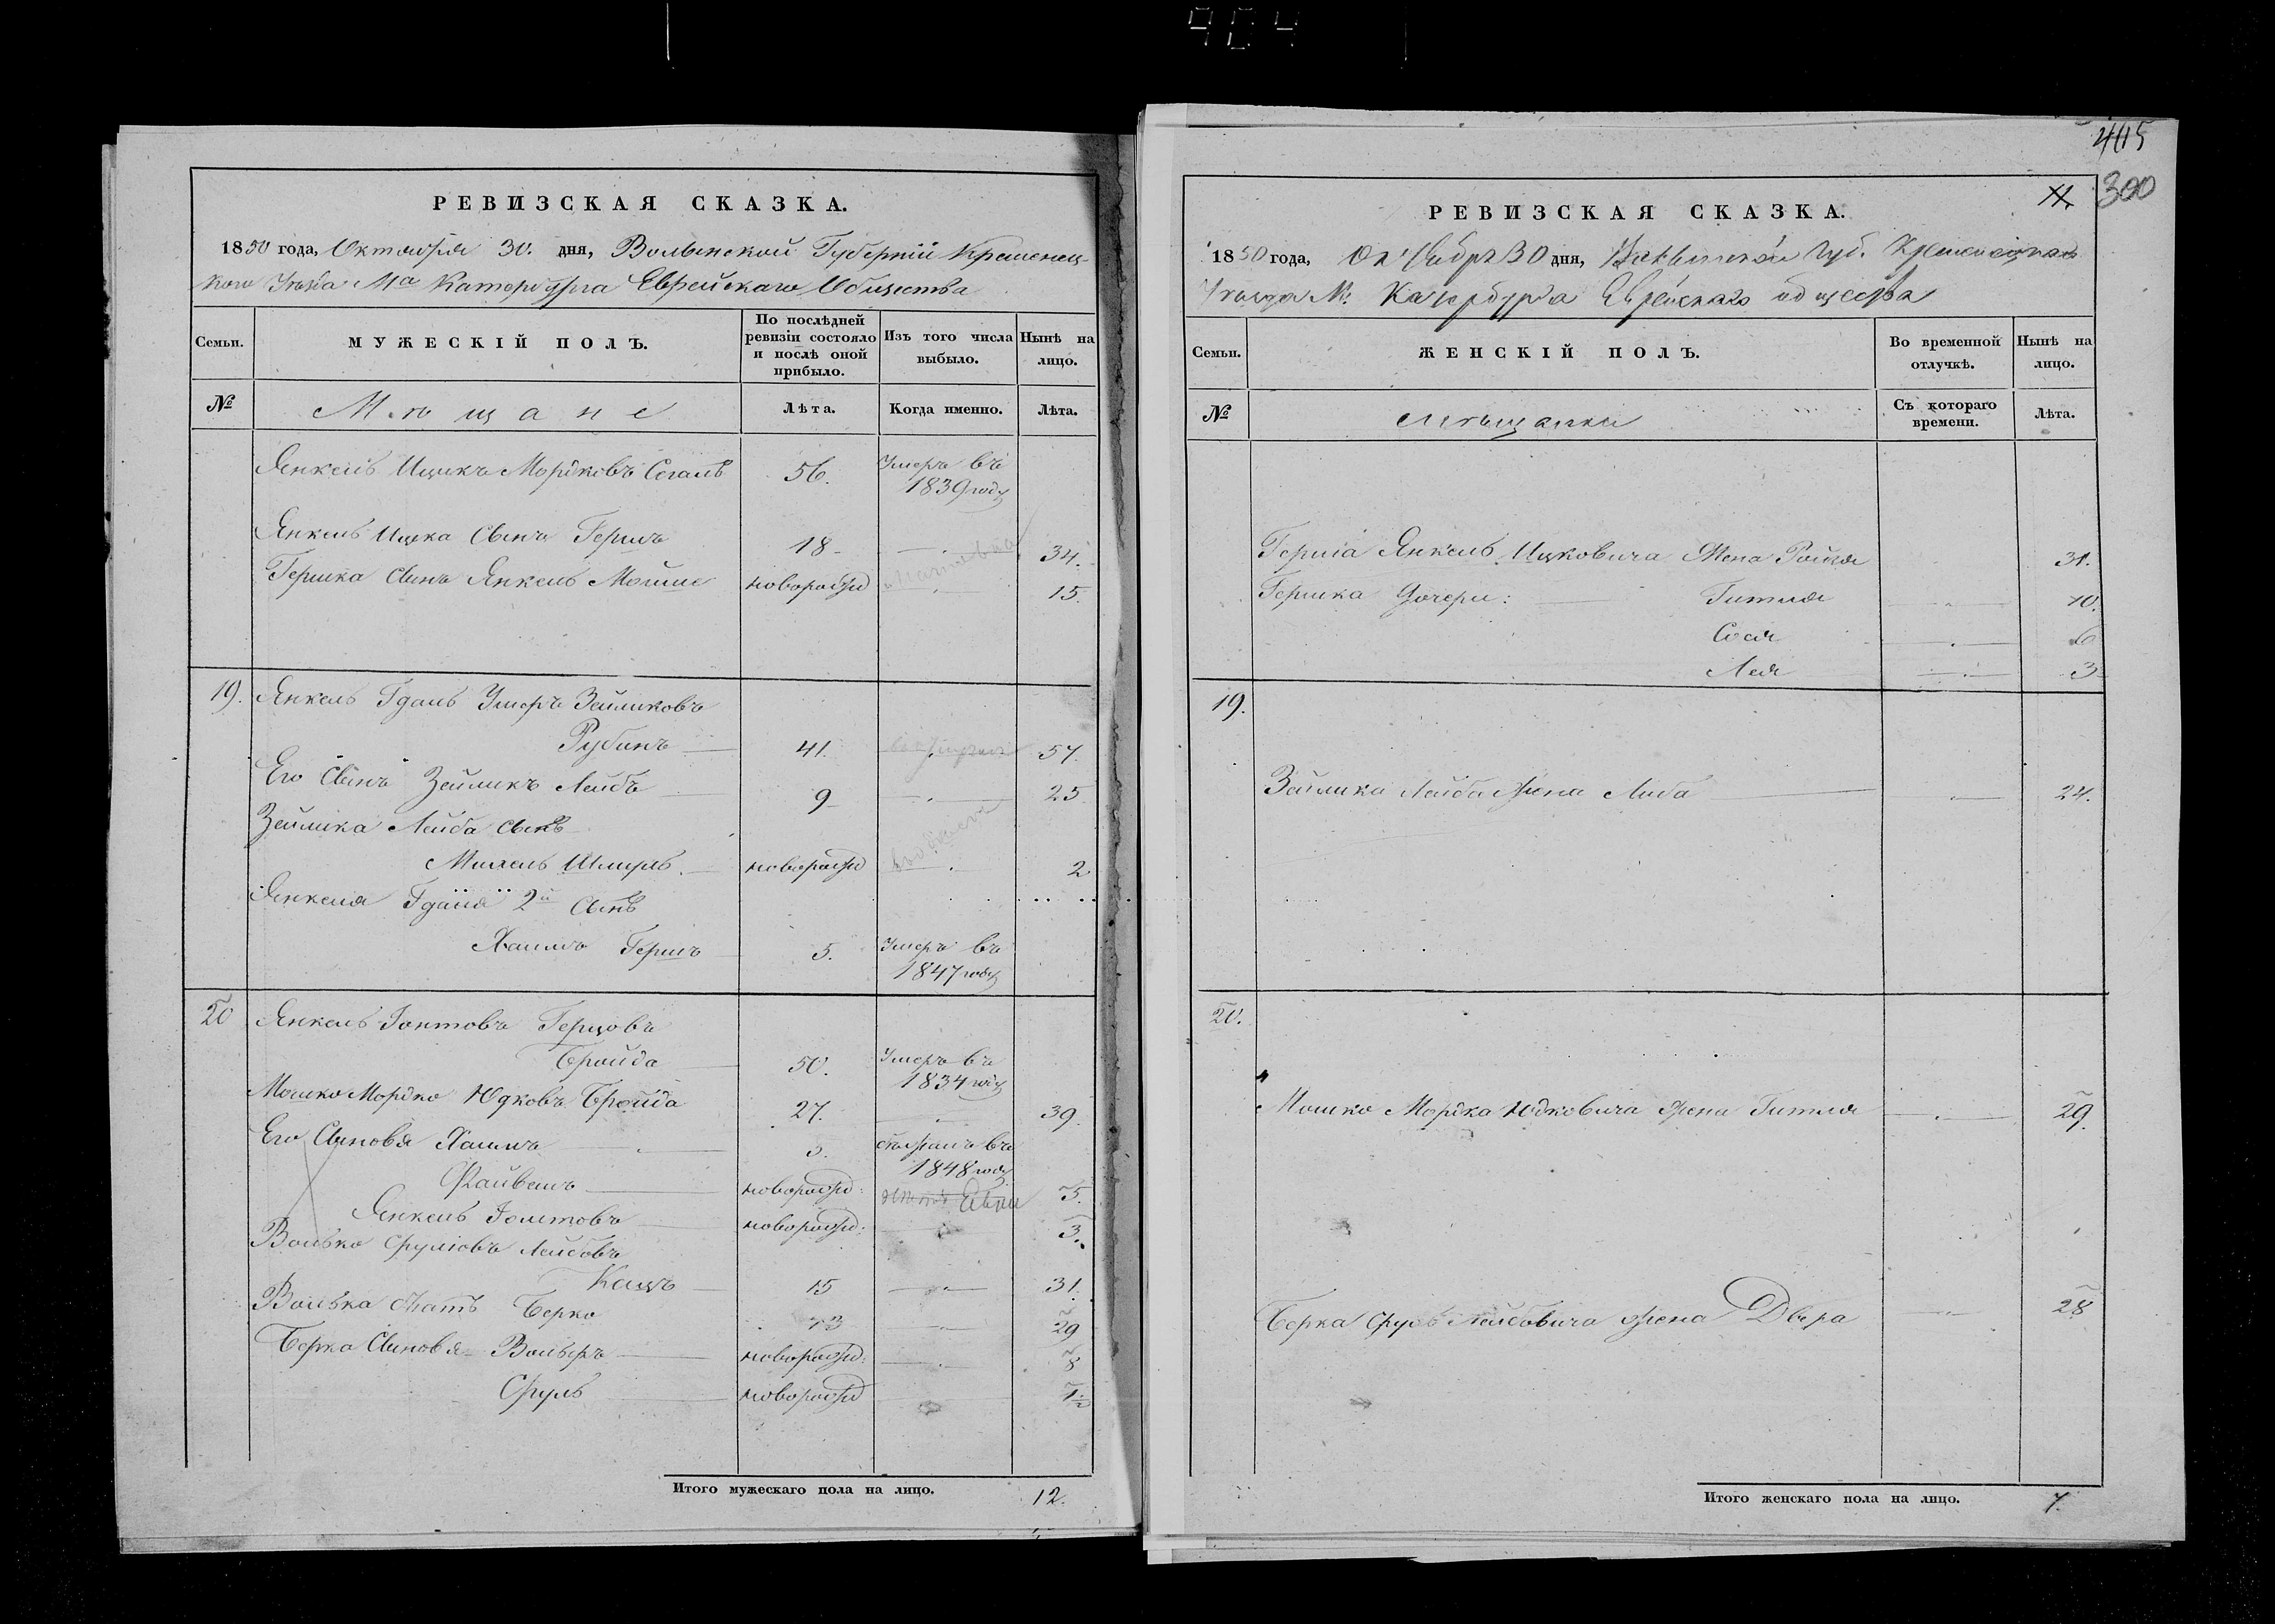 404
РЕВИЗСКАЯ СКАЗКА.
1850 года, Октября 30. дня, Волынской Губерніи Кременец-
кого Уѣзда Мa Катербурга Еврейскаго Общества
Семьи.
МУЖЕСКІЙ ПОЛЪ.
По послѣдней ревизіи состояло и послѣ оной прибыло.
Изъ того числа выбыло.
Нынѣ на лицо.
№
Мѣщане
Лѣта.
Когда именно.
Лѣта.
Янкель Ицикъ Мордковъ Сегалъ 56. Умеръ въ
1839 году
Янкель Ицка Сынъ Гершъ 18 34.
Гершка Сынъ Янкель Мошко новорожд 15.
19. Янкель Гдаль Зейликовъ
Рубинъ 41. 57.
Его Сынъ Зейликъ Лейбъ 9 25
Зейлика Лейба сынъ
Михель Шмуль новорожд 2
Янкеля Гдаля 2й сынъ
Хаимъ Гершъ 5. Умеръ въ
1847 году
20 Янкель Іонтовъ Герцовъ
Бройда 50. Умеръ въ
1834 году
Мошко Мордко Юдковъ Бройда 27. 39.
Его Сыновья Хаимъ въ
1848 году
Файвешъ новорожд: 5.
Янкель Іонтовъ новорожд: 3.
Волько Срулювъ Лейбовъ
Кацъ 15 31.
Волька Братъ Берко 13 29
Берка Сыновья Вольфъ новорожд: 8
Сруль новорожд 1½
Итого мужескаго пола на лицо. 12.
405
300
РЕВИЗСКАЯ СКАЗКА.
1850 года, Октября 30 дня, Волынской Губ. Кременецкаго
Уѣзда М. Катербурга Еврейскаго общества
Семьи.
ЖЕНСКІЙ ПОЛЪ.
Во временной отлучкѣ.
Нынѣ на лицо.
№
Мѣщанки
Съ котораго времени.
Лѣта.
Герша Янкель Ицковича Жена Ройзя 31.
Гершка Дочери: Гитля 10.
Сося 6
Лея 3
19.
Зейлика Лейба жена Либа 24.
20.
Мошко Мордка Юдковича жена Гитля 29.
Берка Сруль Лейбовича жена Двера 28
Итого женскаго пола на лицо. 7.